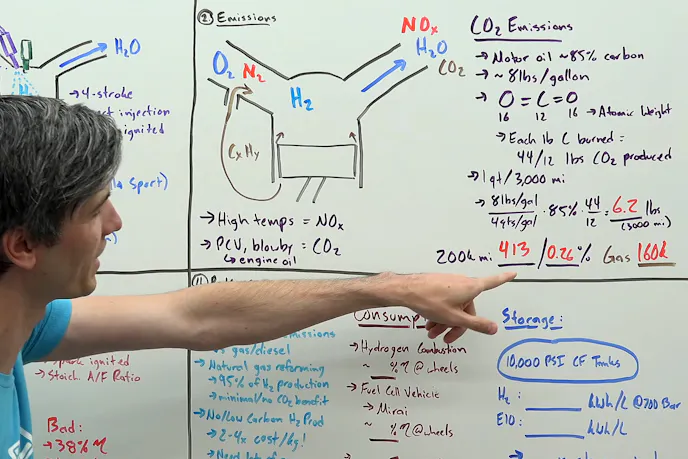 H₂O
→ 4-stroke
injection
ignited
Sport)
② Emissions
NOx
H₂O
CO₂
O₂
N₂
H₂
CxHy
→ High temps = NOx
→ PCV, blowby = CO₂
↳ engine oil
CO₂ Emissions
→ Motor oil ~85% carbon
→ ~8lbs/gallon
→ O = C = O → Atomic Weight
16 12 16
→ Each lb C burned =
44/12 lbs CO₂ produced
→ 1qt/3,000 mi
→ 8lbs/gal / 4qts/gal · 85% · 44/12 = 6.2 lbs
(3000 mi)
200k mi 413 / 0.26% Gas 160k
ignited
→ Stoich. A/F Ratio
Bad:
→ 38% η
emissions
vs gas/diesel
→ Natural gas reforming
→ 95% of H₂ production
→ minimal/no CO₂ benefit
→ No/Low Carbon H₂ Prod
→ 2-4x cost/kg!
→ Need lots of
→ Hydrogen Combustion
→ __ %η @ wheels
→ Fuel Cell Vehicle
→ Mirai
→ __ %η @ wheels
Storage:
10,000 PSI CF Tanks
H₂: ____ kWh/L @ 700 Bar
E10: ____ kWh/L